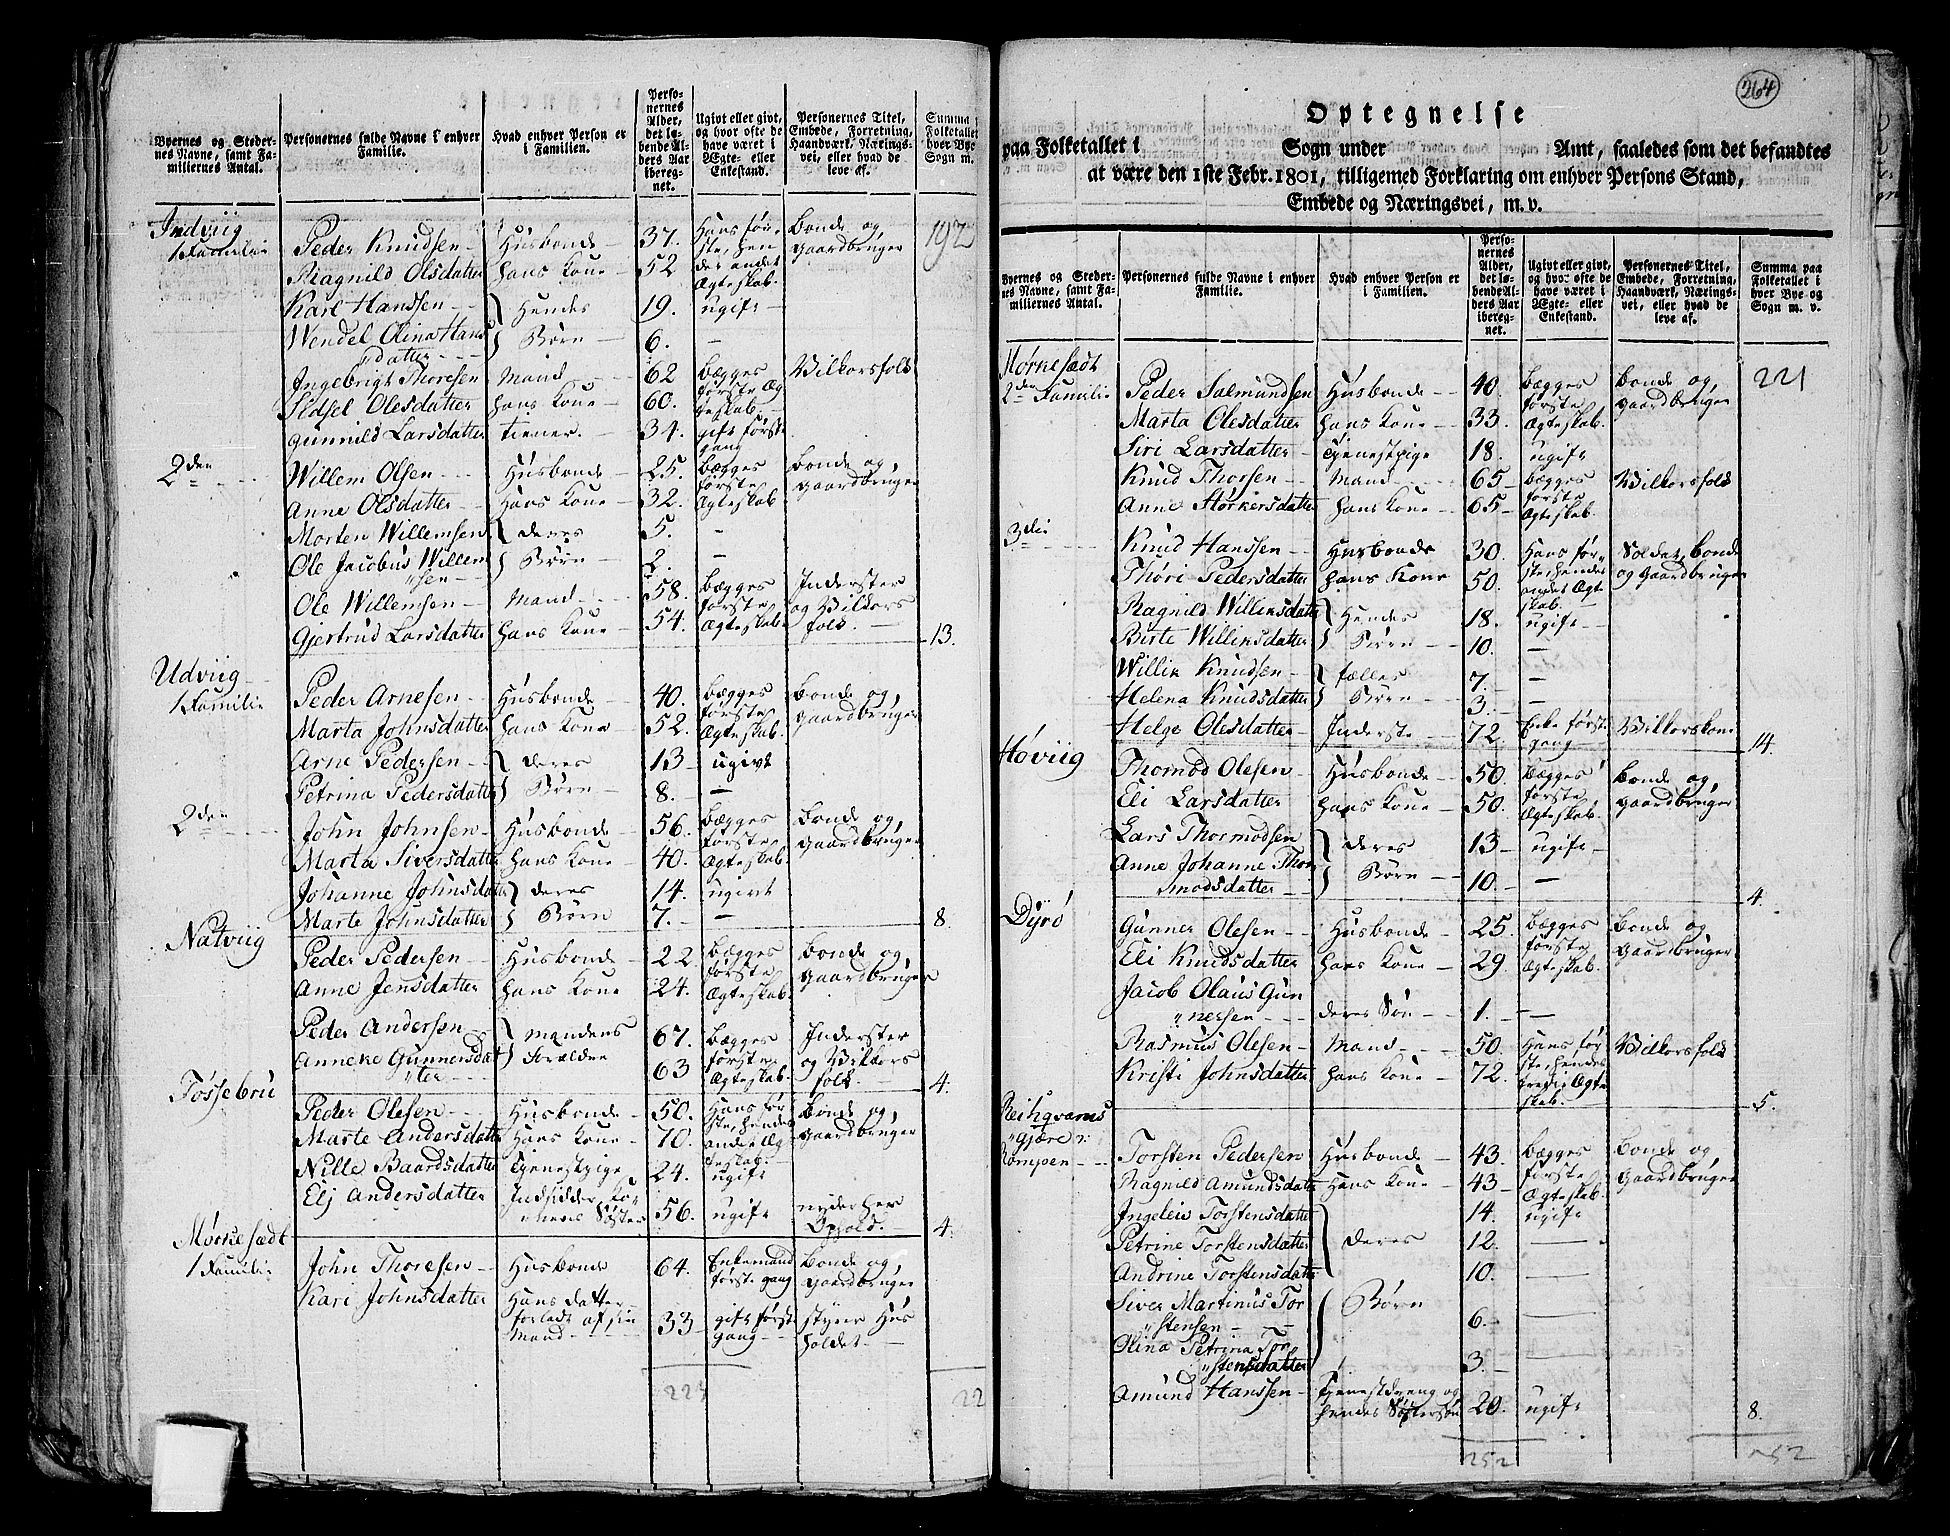 Byernes og Steder-
nes Navne, samt Fa-
miliernes Antal.
Personernes fulde Navne i enhver
Familie.
Hvad enhver Person er
i Familien.
Perso-
nernes
Alder,
det lø-
bende Al-
ders Aar
iberegnet.
Ugivt eller givt,
og hvor ofte de
have været i
Ægte- eller
Enkestand.
Personernes Titel,
Embede, Forretning,
Haandværk, Nærings-
vei, eller hvad de
leve af.
Summa
Folketallet
hver Bye
Sogn m.
Indviig
1 Familie
Peder Knudsen Husbonde 37. Hans før- Bonde og 192
ste, hen gaardbruger
Ragnild Olsdatter Hans Kone 52 des andet
Ægteskab.
Karl Handsen } Hendes 19. ugift
Wendel Olina Hans } Børn 6. —
datter
Ingebrigt Thoresen Mand 62 Begges Vilkorsfolk
Sidsel Olesdatter Hans Kone 60. første Æg
teskab.
Gunnild Larsdatter tiener. 34. gift første
gang
2den
Willem Olsen Husbonde 25. Begges Bonde og
Anne Olsdatter Hans Kone 32. første gaardbruger
Ægteskab
Morten Willemsen } deres 5. —
Ole Jacobus Willem } Børn 2.
"sen
Ole Willemsen Mand 58. Begges Inderster
Gjertrud Larsdatter Hans Kone 54. første og Vilkors
Ægteskab folk. 13.
Udviig
1 Familie
Peder Arnesen Husbonde 40. Begges Bonde og
Marta Johnsdatter Hans Kone 52. første gaardbruger
Ægteskab.
Arne Pedersen } deres 13 ugivt
Petrina Pedersdatter } Børn 8. —
2den
John Johnsen Husbonde 56. Begges Bonde og
Marta Siversdatter Hans Kone 40. første gaardbruger
Ægteskab.
Johanne Johnsdatter } deres 14. ugivt
Marte Johnsdatter } Børn 7. — 8.
Natviig
Peder Pedersen Husbonde 22. Begges Bonde og
Anne Jensdatter Hans Kone 24. første gaardbruger
Ægteskab.
Peder Andersen } Mandens 67. Begges Inderster
Anneke Gunnersdat } Forældre 63 første og Vilkors
"ter Ægteskab. folk. 4.
Tossebru
Peder Olesen Husbonde 50. Hans før Bonde og
Marte Andersdatter Hans Kone 70. ste, hendes gaardbruger
andet Æg
teskab.
Nille Baardsdatter Tjenestpige 24. ugift
Elj Andersdatter Indsidder, Ko-
nens Søster 56. ugift nyder her
Ophold. 4.
Mørkesædt
1 Familie
John Thoresen Husbonde 64. Enkemand Bonde og
første gang gaardbruger
Kari Johnsdatter Hans datter
forladt af sin
Mand 33 gift første styrer Hus
gang holdet.
223 22
264
Optegnelse
paa Folketallet i Sogn under Amt, saaledes som det befandtes
at være den 1ste Febr. 1801, tilligemed Forklaring om enhver Persons Stand,
Embede og Næringsvei, m. v.
Byernes og Steder-
nes Navne, samt Fa-
miliernes Antal.
Personernes fulde Navne i enhver
Familie.
Hvad enhver Person er
i Familien.
Perso-
nernes
Alder,
det lø-
bende Al-
ders Aar
ibereg-
net.
Ugivt eller givt,
og hvor ofte de
have været i
Ægte- eller
Enkestand.
Personernes Titel,
Embede, Forretning,
Haandværk, Nærings-
vei, eller hvad de
leve af.
Summa paa
Folketallet i
hver Bye og
Sogn m. v.
Mørkesædt
2den Familie
Peder Salmundsen Husbonde 40. Begges Bonde og 221
Marta Olesdatter Hans Kone 33. første gaardbruger
Ægteskab.
Siri Larsdatter Tjenestpige 18. ugift
Knud Thorsen Mand 65 Begges Vilkorsfolk
Anne Størkersdatter Hans Kone 65 første
Ægteskab.
3die
Knud Hanssen Husbonde 30. Hans før Soldat, Bonde
Thøri Pedersdatter Hans Kone 50. ste, hendes og gaardbruger
andet Ægte
skab.
Ragnild Williksdatter } Hendes 18. ugift
Birte Williksdatter } Børn 10. —
Willik Knudsen } fælles 7. —
Helena Knudsdatter } Børn 3. —
Helge Olesdatter Inderste 72. Enke første Vilkorskone
gang 14.
Høviig
Thormod Olesen Husbonde 50. Begges Bonde og
Eli Larsdatter Hans Kone 50. første gaardbruger
Ægteskab.
Lars Thormodsen } deres 13 ugift
Anne Johanne Thor } Børn 10. —
modsdatter 4.
Dyrø
Gunner Olesen Husbonde 25. Begges Bonde og
Eli Knudsdatter Hans Kone 29. første gaardbruger
Ægteskab.
Jacob Olaus Gun
"nersen deres Søn 1. —
Rasmus Olesen Mand 50. Hans før Vilkorsfolk
Kristi Johnsdatter Hans Kone 72. ste, hendes
tredie Ægte
skab. 5.
Reihqvams
"gjære
Rompen
Torsten Pedersen Husbonde 43. Begges Bonde og
Ragnild Amundsdatter Hans Kone 43 første gaardbruger
Ægteskab.
Ingeleiv Torstensdatter 14. ugift
Petrine Torstensdatter } deres 12. —
Andrine Torstensdatter 10. —
Siver Martinus Tor } Børn
"stensen 6. —
Olina Petrina Tor
"stensdatter 3. —
Amund Hanssen Tjenestdreng og
hendes Søstersøn 20. ugift 8.
252 252